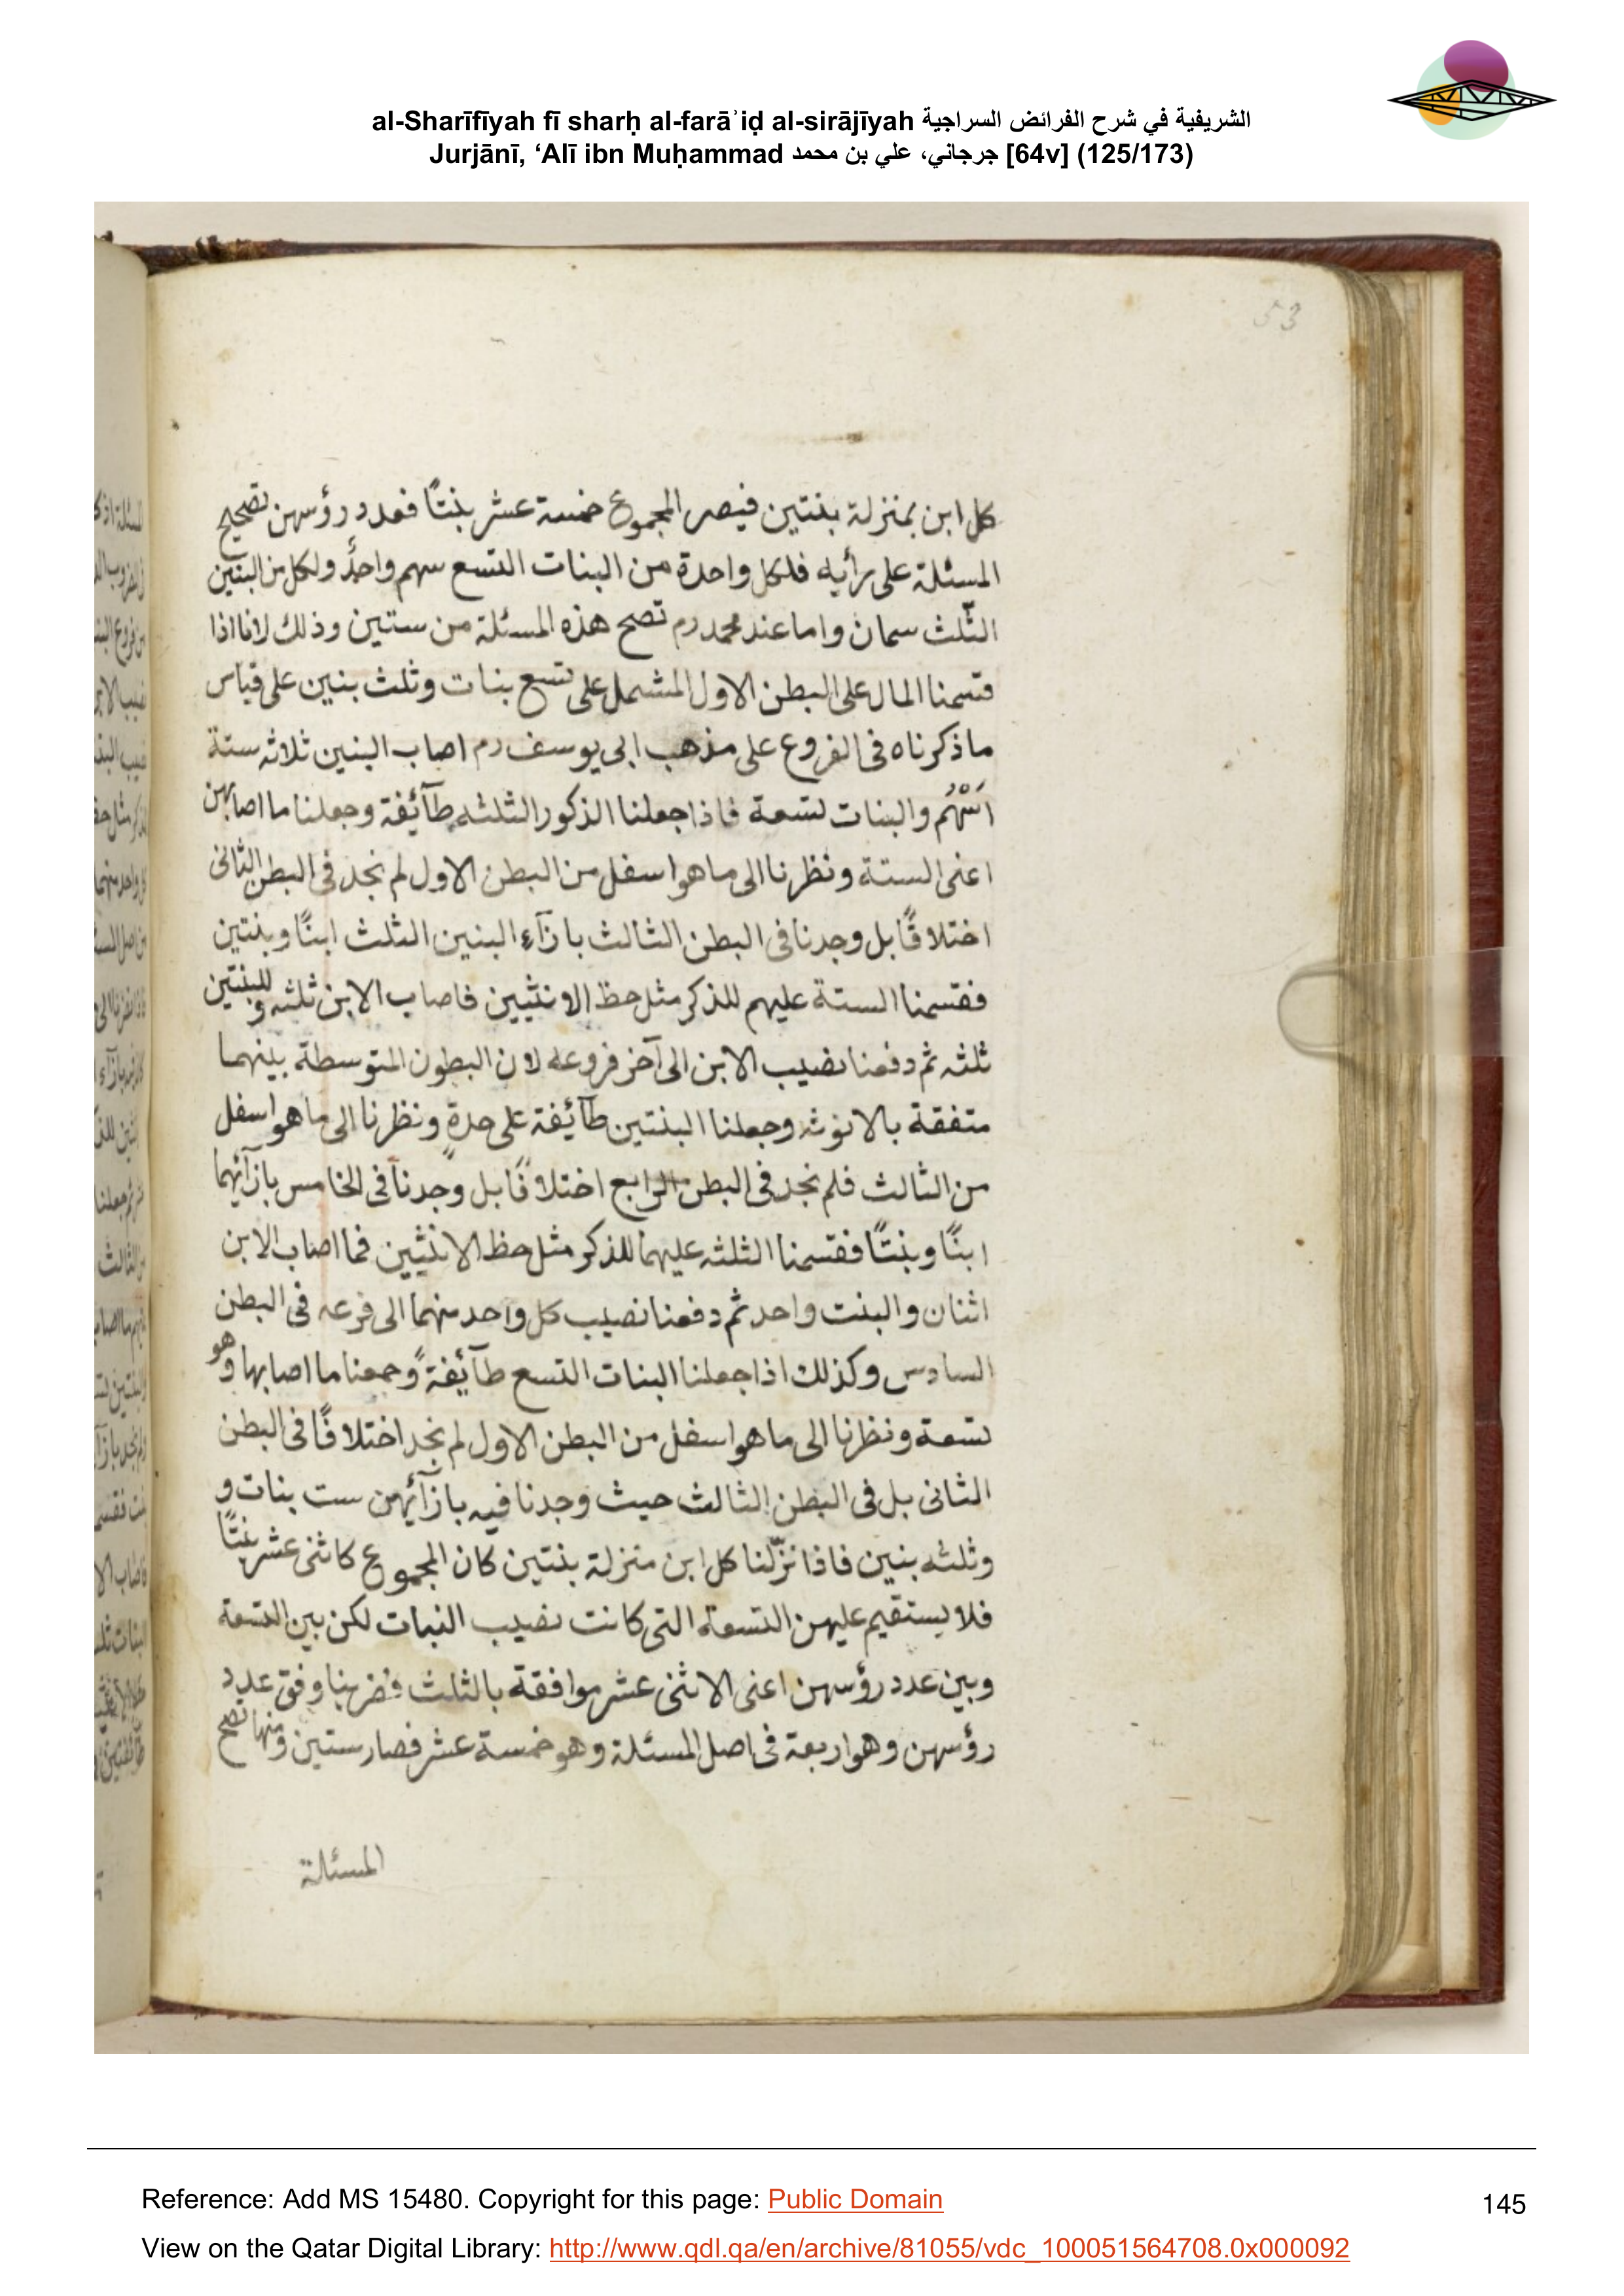 al-Sharīfīyah fī sharḥ al-farāʾiḍ al-sirājīyah الشريفية في شرح الفرائض السراجية
Jurjānī, ‘Alī ibn Muḥammad جرجاني، علي بن محمد [64v] (125/173)
كل ابن بمنزلة بنتين فيصير المجموع خمسة عشر بنتًا فعدد رؤسهن تصحيح
المسئلة على رأيه فلكل واحدة من البنات التسع سهم واحدٌ ولكل من البنين
الثّلث سمان واما عند محمد رم تصح هذه المسئلة من ستين وذلك لانا اذا
قسمنا المال على البطن الاول المشمل على تسع بنات وثلث بنين على قياس
ما ذكرناه فى الفروع على مذهب ابى يوسف رم اصاب البنين ثلاثه ستة
اَسْهُم والبنات تسعة فاذا جعلنا الذكور الثلثه طآئفة وجعلنا ما اصابهن
اعنى الستة ونظرنا الى ما هو اسفل من البطن الاول لم نجد فى البطن الثانى
اختلافًا بل وجدنا فى البطن الثالث بازآء البنين الثلث ابنًا وبنتين
فقسمنا الستة عليهم للذكر مثل حظ الانثيين فاصاب الابن ثلثه وللبنتين
ثلثه ثم دفعنا نصيب الابن الى آخر فروعه لان البطون المتوسطة بينهما
متفقة بالانوثه وجعلنا البنتين طآئفة على حدة ونظرنا الى ما هو اسفل
من الثالث فلم نجد فى البطن الرابع اختلافًا بل وجدنا فى الخامس بازآئهما
ابنًا وبنتًا فقسمنا الثلثه عليهما للذكر مثل حظ الانثيين فما اصاب الابن
اثنان والبنت واحد ثم دفعنا نصيب كل واحد منهما الى فرعه فى البطن
السادس وكذلك اذا جعلنا البنات التسع طآئفةً وجمعنا ما اصابها وهو
تسعة ونظرنا الى ما هو اسفل من البطن الاول لم نجد اختلافًا فى البطن
الثانى بل فى البطن الثالث حيث وجدنا فيه بازآئهن ست بنات و
وثلثه بنين فاذا نزّلنا كل ابن منزلة بنتين كان المجموع كاثنى عشر بنتًا
فلا يستقيم عليهن التسعة التى كانت نصيب النبات لكن بين التسعة
وبين عدد رؤسهن اعنى الاثنى عشر موافقة بالثلث فضربنا وفق عدد
رؤسهن وهو اربعة فى اصل المسئلة وهو خمسة عشر فصار ستين ومنها تصح
المسئلة
Reference: Add MS 15480. Copyright for this page: Public Domain
145
View on the Qatar Digital Library: http://www.qdl.qa/en/archive/81055/vdc_100051564708.0x000092